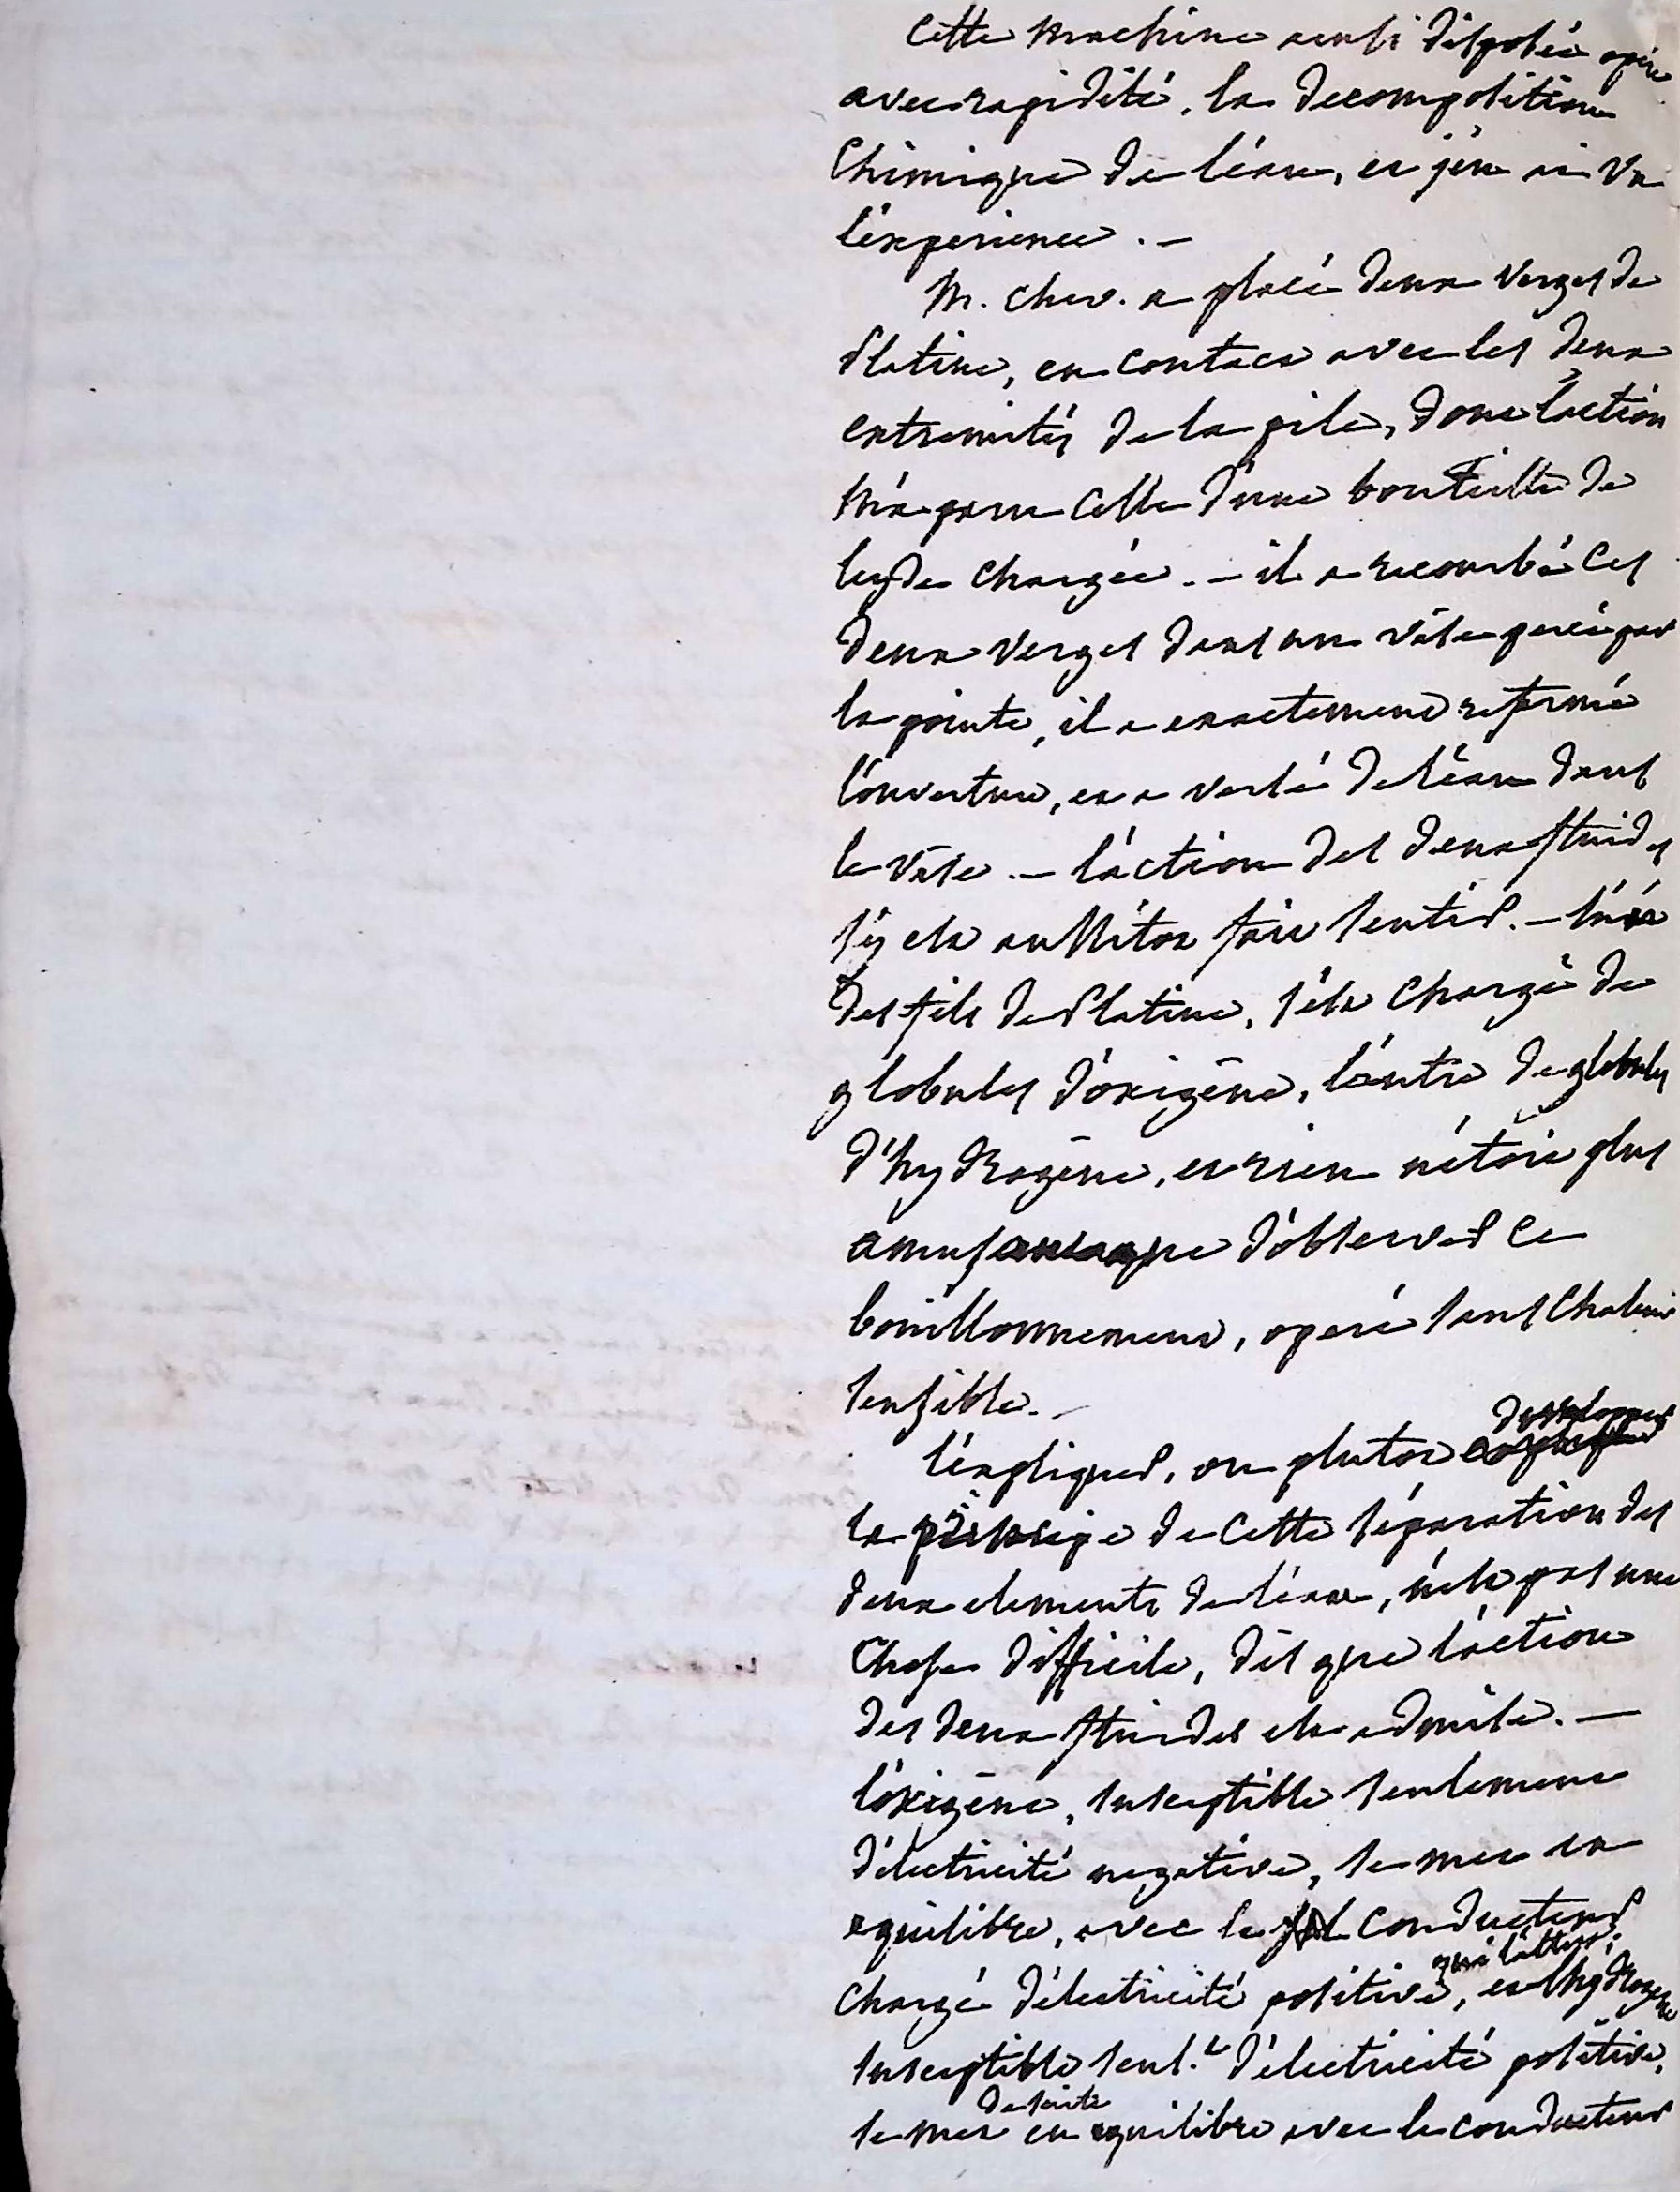 Cette machine ainsi disposée opère
avec rapidité, la decomposition
chimique de l'éau, et j'en ai vu
l'éxperience. —
M. Chev. a placé deux verges de
Platine, en contact avec les deux
extremités de la pile, dont l'action
m'a paru celle d'une bouteille de
leyde chargée. — il a recourbé ces
deux verges dans un vâse percé par
la pointe, il a exactement refermé
l'ouverture, et a versé de l'éau dans
le vâse. — l'action des deux fluides
s'y est aussitot fait sentir. — l'un
des fils de Platine, s'est chargé de
globules d'oxigêne, l'autre de globules
d'hydrogêne, et rien n'étoit plus
amusant que d'observer ce
bouillonnement, operé sans chaleur
sensible. —
l'éxpliquer, ou plutot developper
le principe de cette séparation des
deux elements de l'éau, n'est pas une
chose difficile, dès que l'action
des deux fluides est admise. —
l'oxigêne, susceptible seulement
d'électricité negative, se met en
equilibre, avec le conducteur
qui l'attire;
chargé d'électricité positive, et l'hydrogêne
susceptible seul.t d'électricité positive,
de suite
se met en equilibre avec le conducteur